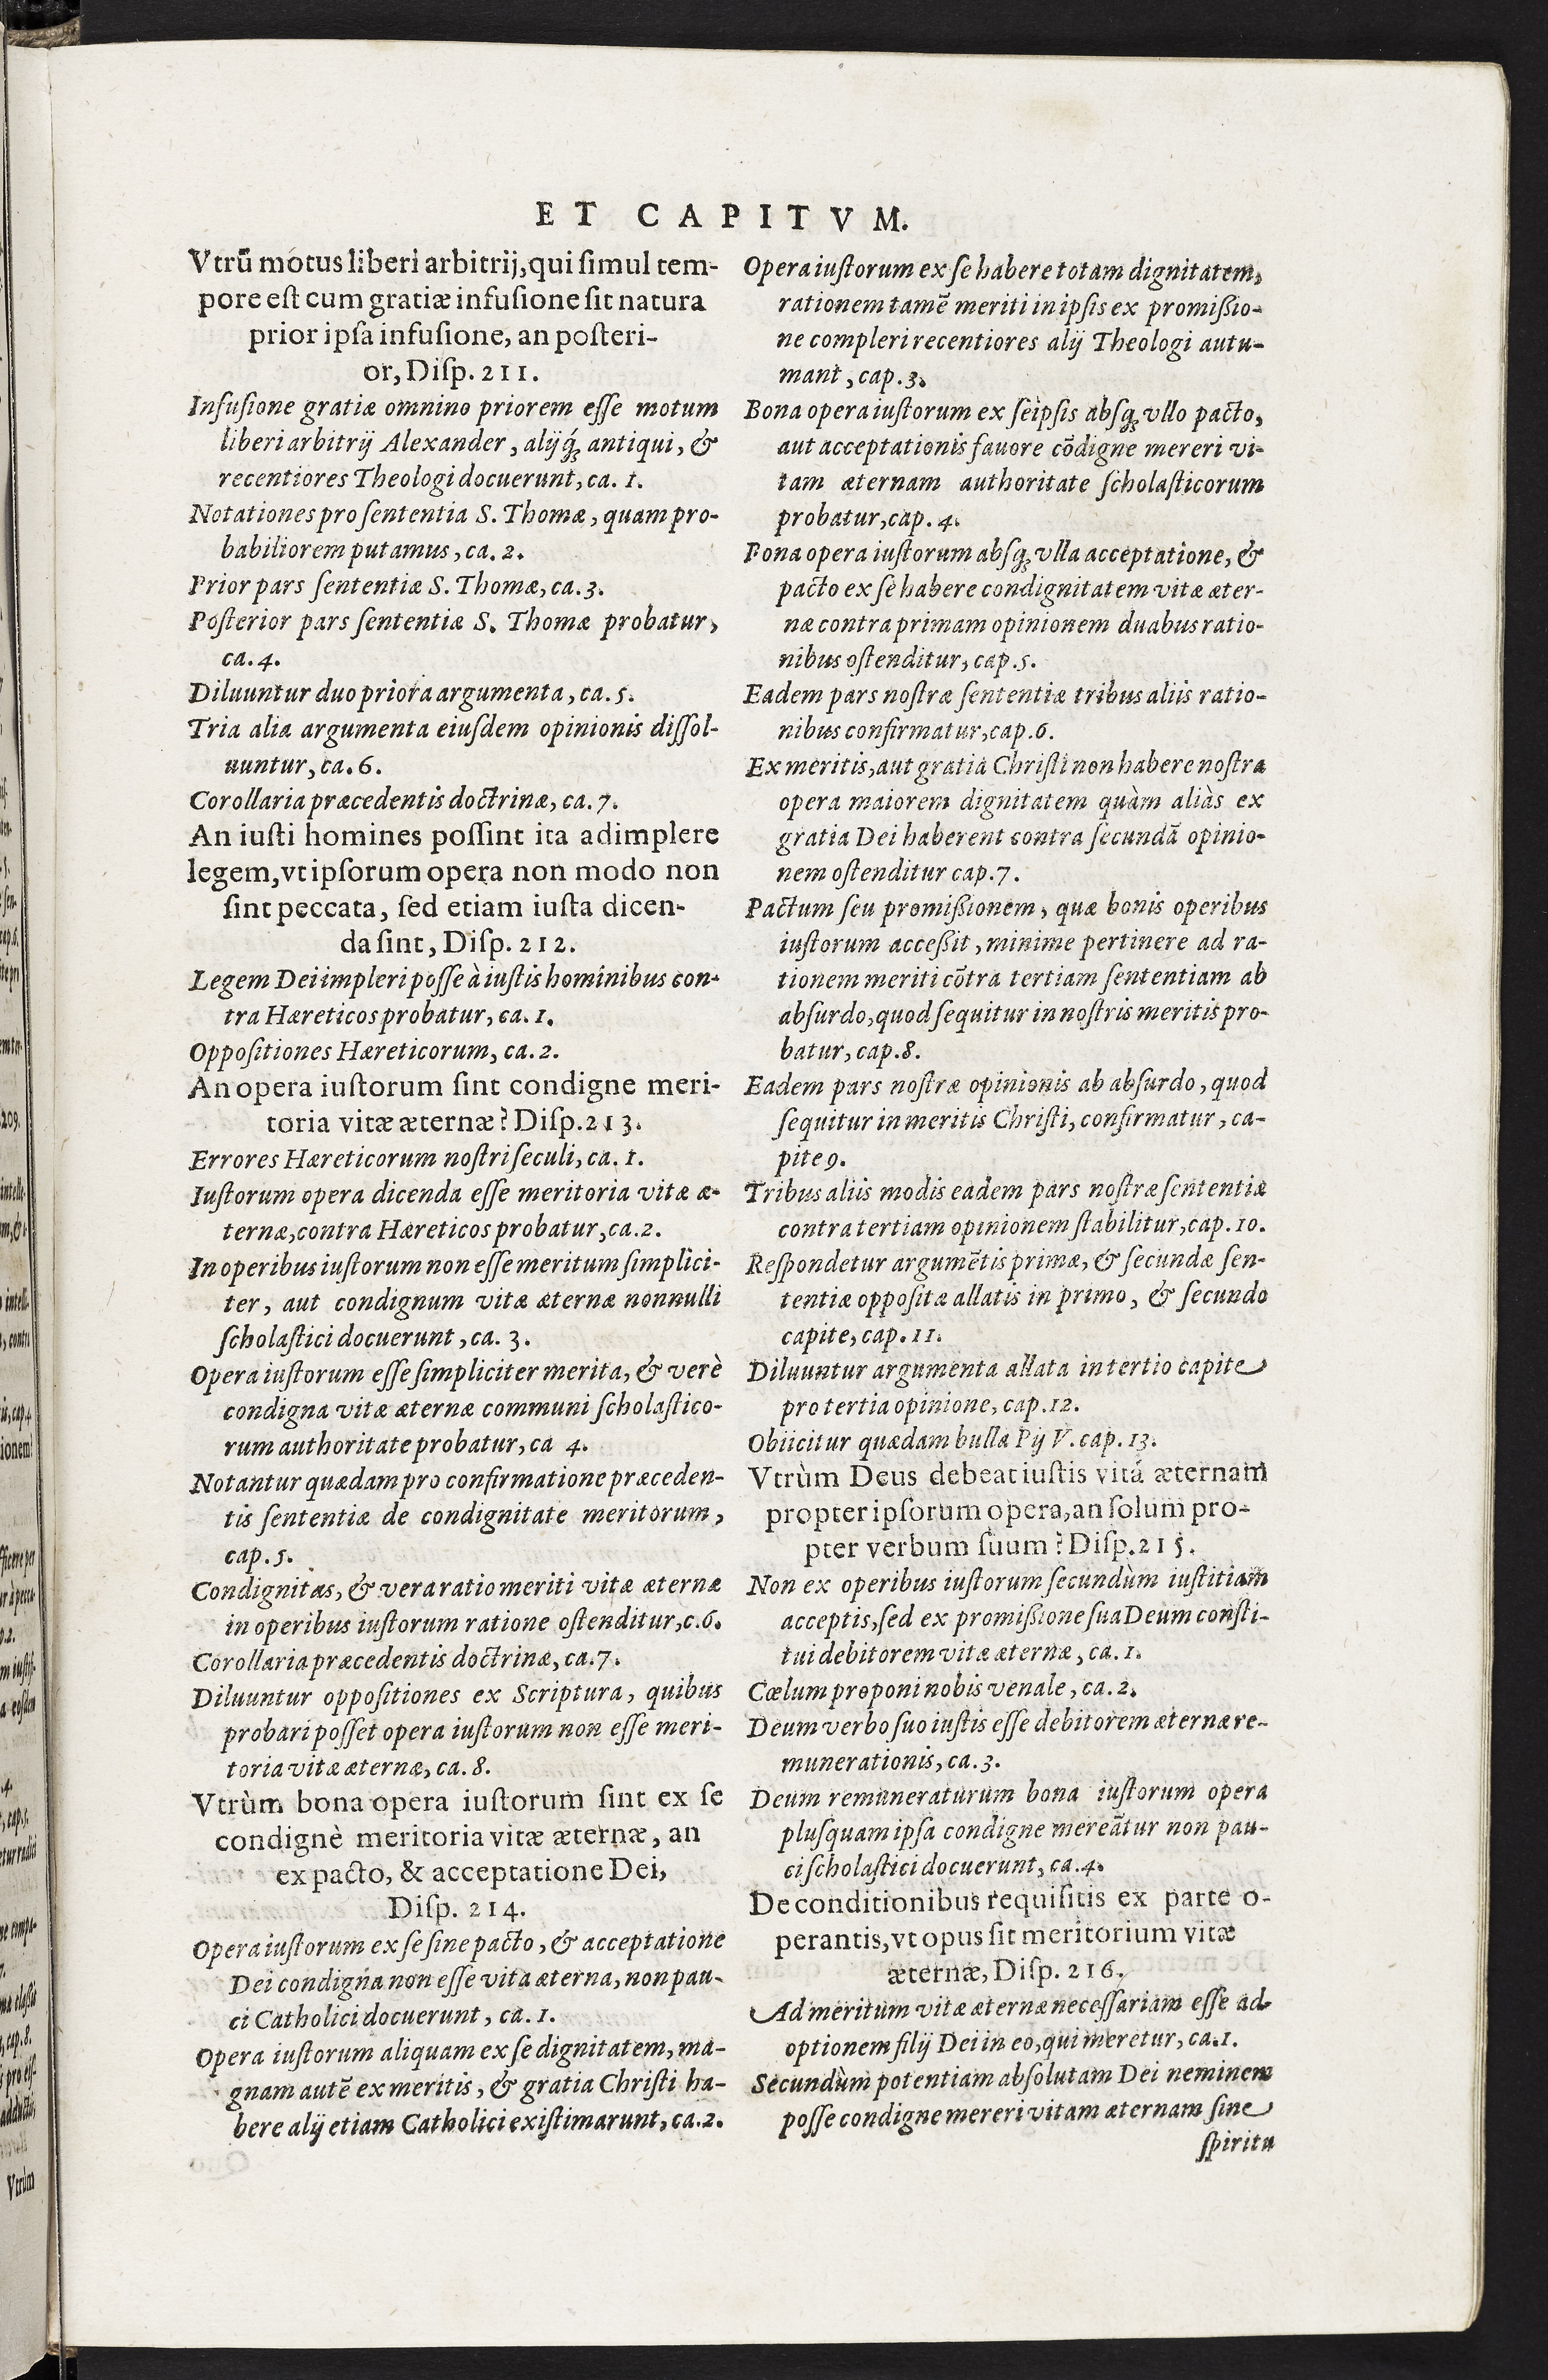 ET CAPITVM.
Vtrū motus liberi arbitrij, qui ſimul tem-
pore eſt cum gratiæ infuſione ſit natura
prior ipſa infuſione, an poſteri-
or, Diſp. 211.
Infuſione gratiæ omnino priorem eſſe motum
liberi arbitrij Alexander, alijq́; antiqui, &
recentiores Theologi docuerunt, ca. 1.
Notationes pro ſententia S. Thomæ, quam pro-
babiliorem putamus, ca. 2.
Prior pars ſententiæ S. Thomæ, ca. 3.
Poſterior pars ſententiæ S. Thomæ probatur,
ca. 4.
Diluuntur duo priora argumenta, ca. 5.
Tria alia argumenta eiuſdem opinionis diſſol-
uuntur, ca. 6.
Corollaria præcedentis doctrinæ, ca. 7.
An iuſti homines poſſint ita adimplere
legem, vt ipſorum opera non modo non
ſint peccata, ſed etiam iuſta dicen-
da ſint, Diſp. 212.
Legem Dei impleri poſſe à iuſtis hominibus con-
tra Hæreticos probatur, ca. 1.
Oppoſitiones Hæreticorum, ca. 2.
An opera iuſtorum ſint condigne meri-
toria vitæ æternæ? Diſp. 213.
Errores Hæreticorum noſtri ſeculi, ca. 1.
Iuſtorum opera dicenda eſſe meritoria vitæ æ-
ternæ, contra Hæreticos probatur, ca. 2.
In operibus iuſtorum non eſſe meritum ſimplici-
ter, aut condignum vitæ æternæ nonnulli
ſcholaſtici docuerunt, ca. 3.
Opera iuſtorum eſſe ſimpliciter merita, & verè
condigna vitæ æternæ communi ſcholaſtico-
rum authoritate probatur, ca 4.
Notantur quædam pro confirmatione præceden-
tis ſententiæ de condignitate meritorum,
cap. 5.
Condignitas, & vera ratio meriti vitæ æternæ
in operibus iuſtorum ratione oſtenditur, c. 6.
Corollaria præcedentis doctrinæ, ca. 7.
Diluuntur oppoſitiones ex Scriptura, quibus
probari poſſet opera iuſtorum non eſſe meri-
toria vitæ æternæ, ca. 8.
Vtrùm bona opera iuſtorum ſint ex ſe
condignè meritoria vitæ æternæ, an
ex pacto, & acceptatione Dei,
Diſp. 214.
Opera iuſtorum ex ſe ſine pacto, & acceptatione
Dei condigna non eſſe vita æterna, non pau-
ci Catholici docuerunt, ca. 1.
Opera iuſtorum aliquam ex ſe dignitatem, ma-
gnam autē ex meritis, & gratia Chriſti ha-
bere alij etiam Catholici exiſtimarunt, ca. 2.
Opera iuſtorum ex ſe habere totam dignitatem,
rationem tamē meriti in ipſis ex promiſſio-
ne compleri recentiores alij Theologi autu-
mant, cap. 3.
Bona opera iuſtorum ex ſeipſis abſq; vllo pacto,
aut acceptationis fauore cōdigne mereri vi-
tam æternam authoritate ſcholaſticorum
probatur, cap. 4.
Bona opera iuſtorum abſq; vlla acceptatione, &
pacto ex ſe habere condignitatem vitæ æter-
næ contra primam opinionem duabus ratio-
nibus oſtenditur, cap. 5.
Eadem pars noſtræ ſententiæ tribus aliis ratio-
nibus confirmatur, cap. 6.
Ex meritis, aut gratia Chriſti non habere noſtra
opera maiorem dignitatem quàm aliàs ex
gratia Dei haberent contra ſecundā opinio-
nem oſtenditur cap. 7.
Pactum ſeu promiſſionem, quæ bonis operibus
iuſtorum acceſſit, minime pertinere ad ra-
tionem meriti cōtra tertiam ſententiam ab
abſurdo, quod ſequitur in noſtris meritis pro-
batur, cap. 8.
Eadem pars noſtræ opinionis ab abſurdo, quod
ſequitur in meritis Chriſti, confirmatur, ca-
pite 9.
Tribus aliis modis eadem pars noſtræ ſententiæ
contra tertiam opinionem ſtabilitur, cap. 10.
Reſpondetur argumētis primæ, & ſecundæ ſen-
tentiæ oppoſitæ allatis in primo, & ſecundo
capite, cap. 11.
Diluuntur argumenta allata in tertio capite
pro tertia opinione, cap. 12.
Obiicitur quædam bulla Pij V. cap. 13.
Vtrùm Deus debeat iuſtis vitá æternam
propter ipſorum opera, an ſolum pro-
pter verbum ſuum? Diſp. 215.
Non ex operibus iuſtorum ſecundùm iuſtitiam
acceptis, ſed ex promiſſione ſua Deum conſti-
tui debitorem vitæ æternæ, ca. 1.
Cœlum proponi nobis venale, ca. 2.
Deum verbo ſuo iuſtis eſſe debitorem æternæ re-
munerationis, ca. 3.
Deum remuneraturum bona iuſtorum opera
pluſquam ipſa condigne mereātur non pau-
ci ſcholaſtici docuerunt, ca. 4.
De conditionibus requiſitis ex parte o-
perantis, vt opus ſit meritorium vitæ
æternæ, Diſp. 216.
Ad meritum vitæ æternæ neceſſariam eſſe ad-
optionem filij Dei in eo, qui meretur, ca. 1.
Secundùm potentiam abſolutam Dei neminem
poſſe condigne mereri vitam æternam ſine
ſpiritu